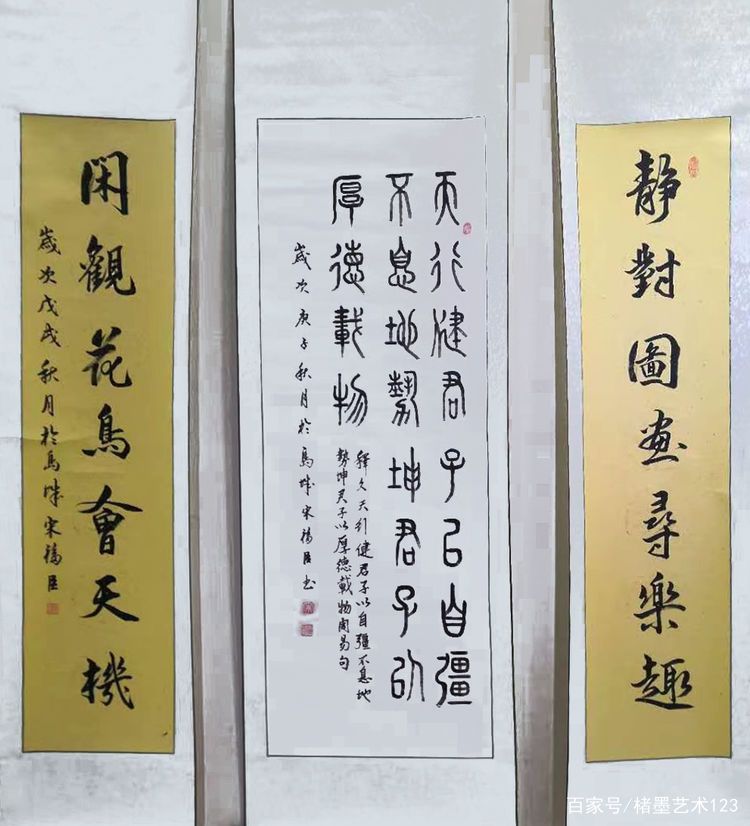 靜對圖畫尋樂趣
天行健君子以自彊
不息地勢坤君子以
厚德載物
釋文天行健君子以自彊不息地
勢坤君子以厚德載物周易句
歲次庚子秋月於 城宋福臣书
閑觀花鳥會天機
歲次戊戌秋月於 城宋福臣
百家号/楮墨艺术123